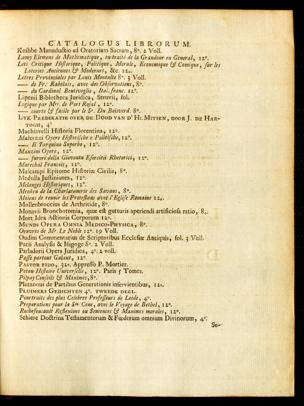 CATALOGUS LIBRORUM.
Knibbe Manuductio ad Oratoriam Sacram, 8°. 2 Voll.
Lamy Elemens de Mathematique, ou traité de la Grandeur en General, 12°.
Leti Critique Historique, Politique, Morale, Economique & Comique, sur les
Loteries Anciennes & Modernes, &c. 12°.
Lettres Provinciales par Louis Montalte 8°. 3 Voll.
—— de Fr. Rabelais, avec des Observations, 8°.
—— du Cardinal Bentivoglio, Ital. franc. 12°.
Lipenii Bibliotheca Juridica, Struvii, fol.
Logique par Mrs. de Port Royal, 12°.
—— courte & facile par le Sr. Du Boisverd. 8°.
LYK PREDIKATIE OVER DE DOOD VAN D' H. MITIEN, DOOR J. DE HAR-
TOGH, 4°
Machiavelli Historia Florentina, 12°.
Malvezzi Opere Historiche e Politiche, 12°.
—— Il Tarquino Superbo, 12°.
Manzini Opere, 12°.
—— furori della Gioventu Esercitii Rhetorici, 12°.
Marechal Francois, 12°.
Matcampi Epitome Historiæ Civilis, 8°.
Medulla Justinianea, 12°.
Melanges Historiques, 12°.
Menken de la Charlatanerie des Savans, 8°.
Moiens de reunir les Protestans avec l'Eglise Romaine 12°.
Mollenbroccius de Arthritide, 8°.
Monavii Bronchotomia, quæ est gutturis aperiendi artificiosa ratio, 8°.
Mori, Idea Actionis Corporum 12°.
MUNDY OPERA OMNIA MEDICO-PHYSICA, 8°.
Oeuvres de Mr. Le Noble 12°. 19 Voll.
Oudini Commentarius de Scriptoribus Ecclesiæ Antiquis, fol. 3 Voll.
Patii Analysis & Isgoge 8°. 2 Voll.
Passe partout Galant, 12°.
PASTOR FIDO, 32°. Appresso P. Mortier.
Petau Histoire Universelle, 12°. Paris 5 Tomes.
Pilpay Conseils & Maximes, 8°.
Plazzonus de Partibus Generationis inservientibus, 12°.
PLUIMERS GEDICHTEN 4°. TWEEDE DEEL.
Pourtraits des plus Celebres Professeurs de Leide, 4°.
Preparations pour la Ste. Cene, avec le Voyage de Bethel, 12°.
Rochefoucault Reflexions ou Sentences & Maximes morales, 12°.
Schiere Doctrina Testamentorum & Fœderum omnium Divinorum, 4°.